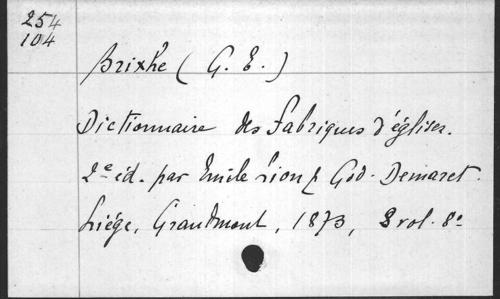 254
104
Brixhe (G. E.)
Dictionnaire des Fabriques d'églises.
2e éd. par Emile Lion & God. Demaret.
Liége, Grandmont, 1873, 3 vol. 8o